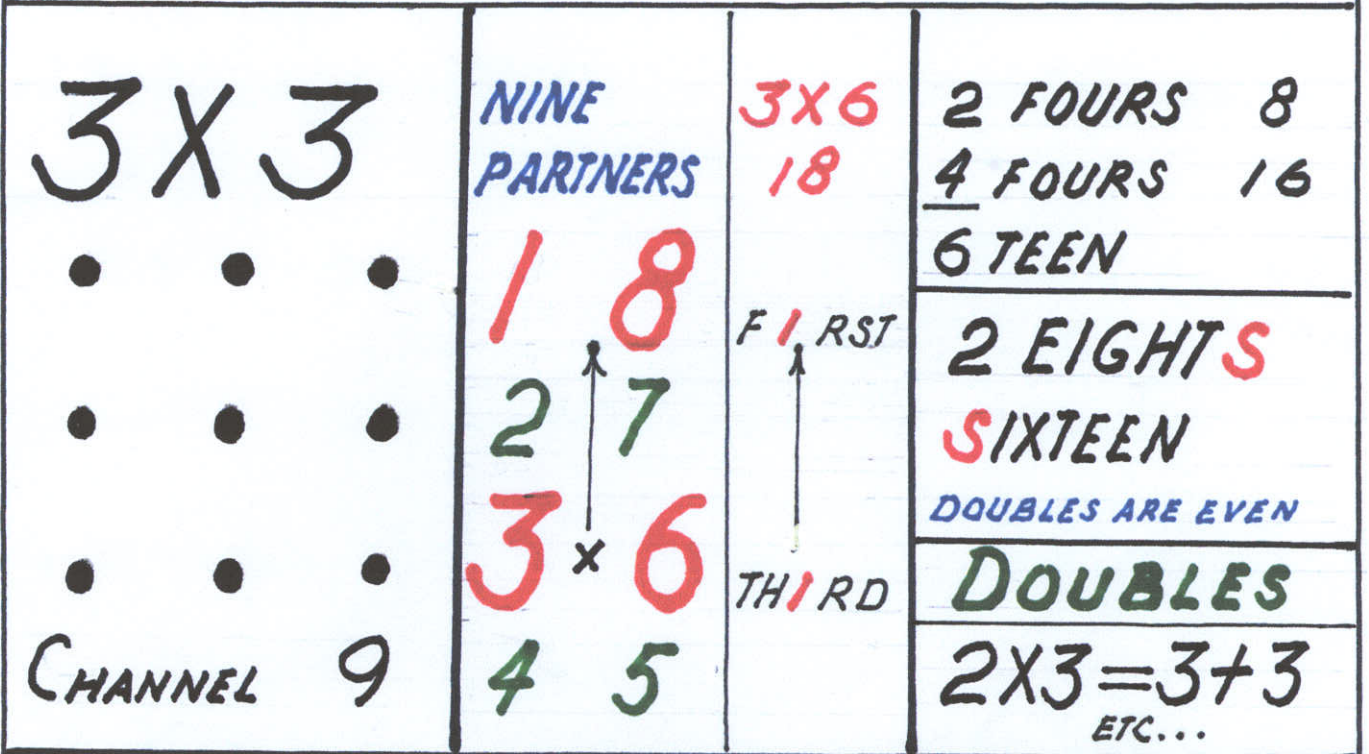 3X3
CHANNEL 9
NINE
PARTNERS
1 8
2 7
3 x 6
4 5
3X6
18
FIRST
THIRD
2 FOURS 8
4 FOURS 16
6 TEEN
2 EIGHTS
SIXTEEN
DOUBLES ARE EVEN
DOUBLES
2X3=3+3
ETC...